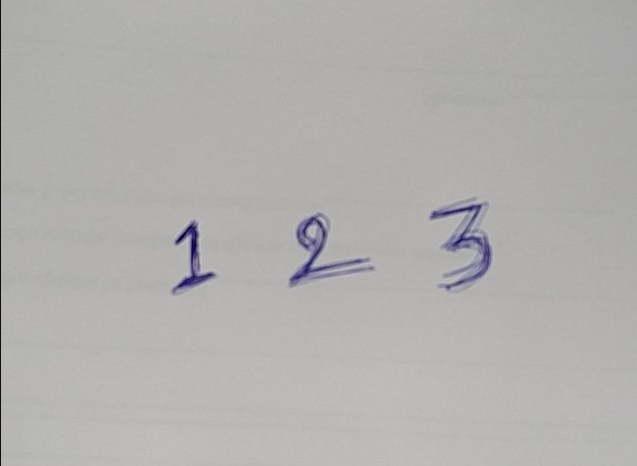 1 2 3